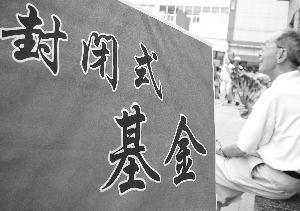 封闭式
基金